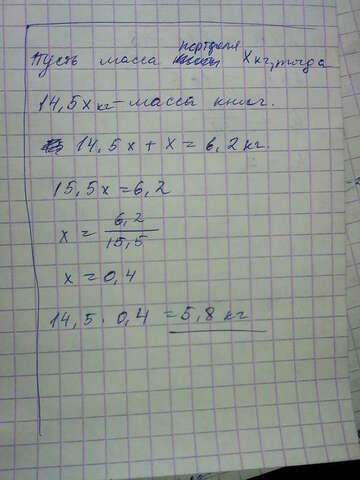 Пусть масса портфеля x кг, тогда
14,5x кг - масса книг.
14,5x + x = 6,2 кг.
15,5x = 6,2
x = 6,2 / 15,5
x = 0,4
14,5 · 0,4 = 5,8 кг